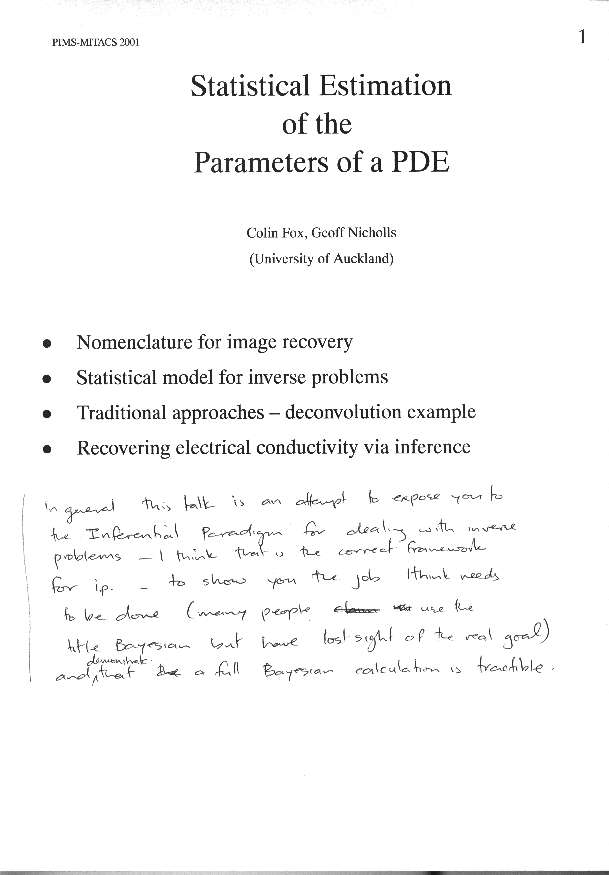 PIMS-MITACS 2001
1
Statistical Estimation
of the
Parameters of a PDE
Colin Fox, Geoff Nicholls
(University of Auckland)
• Nomenclature for image recovery
• Statistical model for inverse problems
• Traditional approaches – deconvolution example
• Recovering electrical conductivity via inference
In general this talk is an attempt to expose you to
the Inferential Paradigm for dealing with inverse
problems – I think that is the correct framework
for i.p. – to show you the job I think needs
to be done (many people use the
title Bayesian but have lost sight of the real goal)
demonstrate
and that a full Bayesian calculation is tractible.